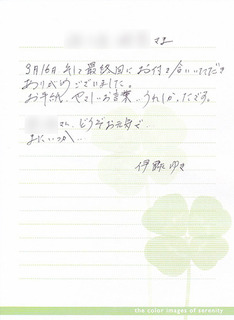 さま
9月16日 そして最終回にお付き合いいただき
ありがとうございました。
お手紙、やさしいお言葉、うれしかったです。
さん、どうぞお元気で。
またいつか
伊
the color images of serenity